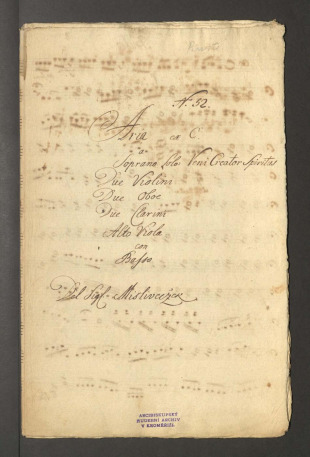 N. 52.
Aria ex C
a
Soprano Solo Veni Creator Spiritus
Due Violini
Due Oboe
Due Clarini
Alto Viola
con
Basso
Del Sigl. Misliveczek
ARCIBISKUPSKÝ
HUDEBNÍ ARCHIV
V KROMĚŘÍŽI